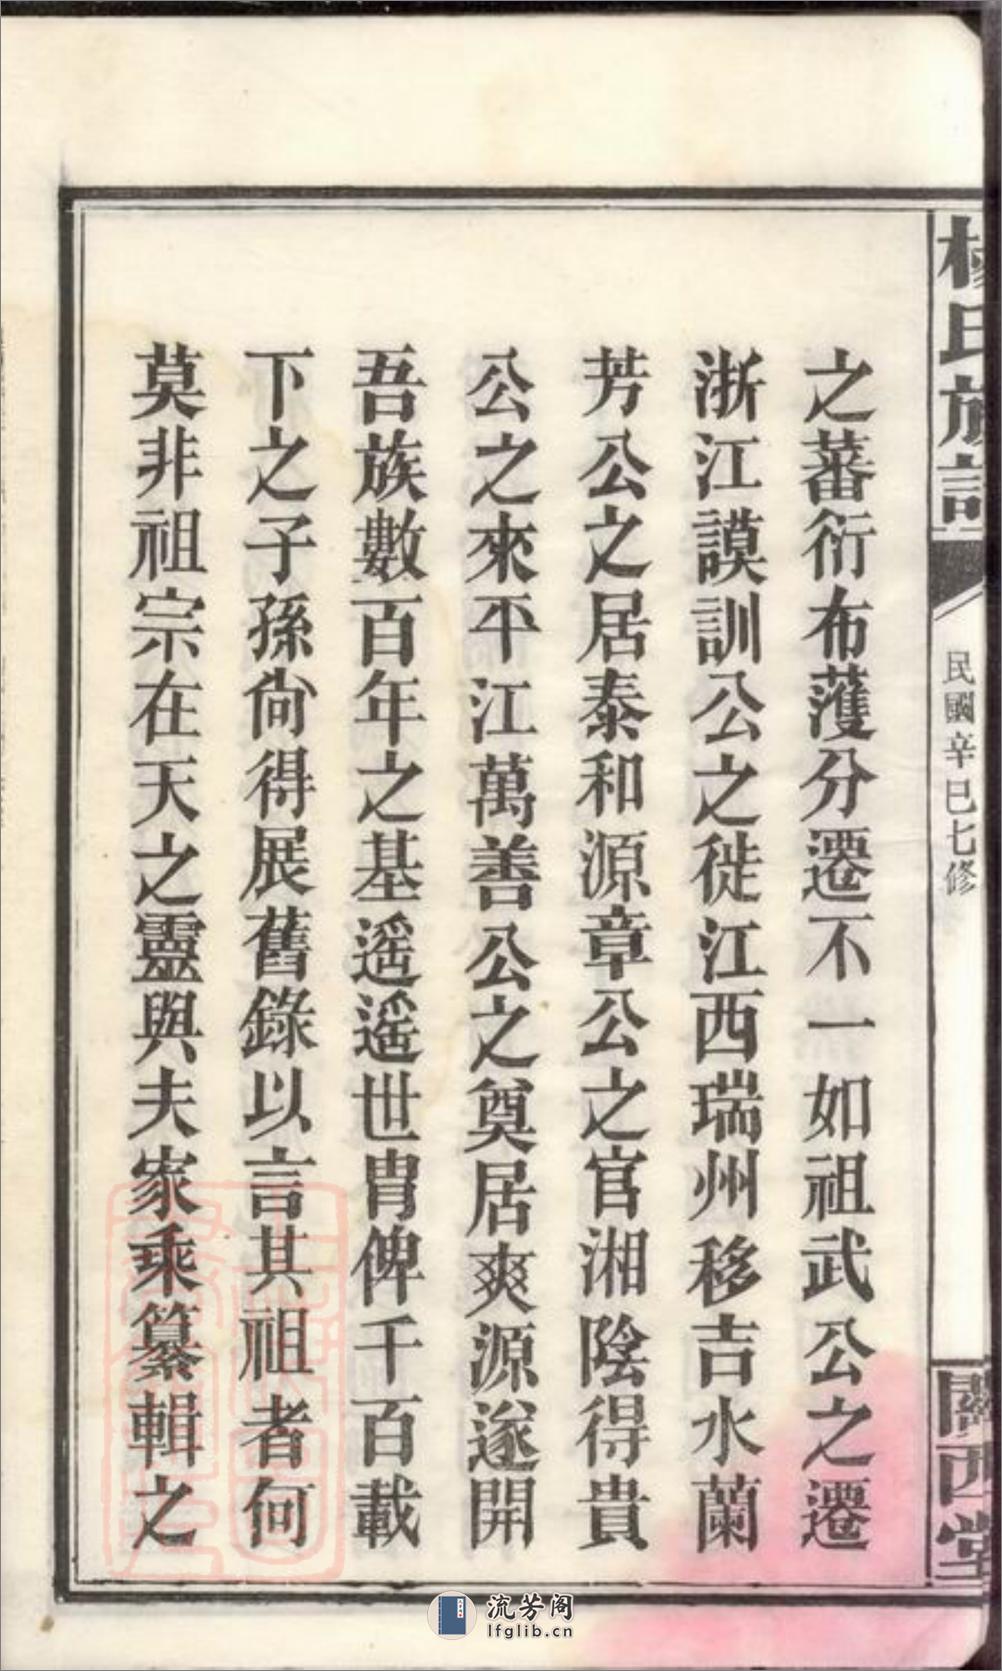 楊氏族譜
民國辛巳七修
關西堂
之蕃衍布濩分遷不一如祖武公之遷
浙江謨訓公之徙江西瑞州移吉水蘭
芳公之居泰和源章公之官湘陰得貴
公之來平江萬善公之奠居爽源遂開
吾族數百年之基遥遥世胄俾千百載
下之子孫尙得展舊錄以言其祖者何
莫非祖宗在天之靈與夫家乘纂輯之
流芳阁
lfglib.cn